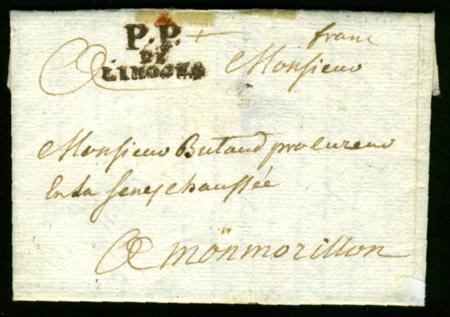 franc
P.P.
DE
LIMOGES
A Monsieur
Monsieur Butaud procureur
En la Seneychaussée
A monmorillon